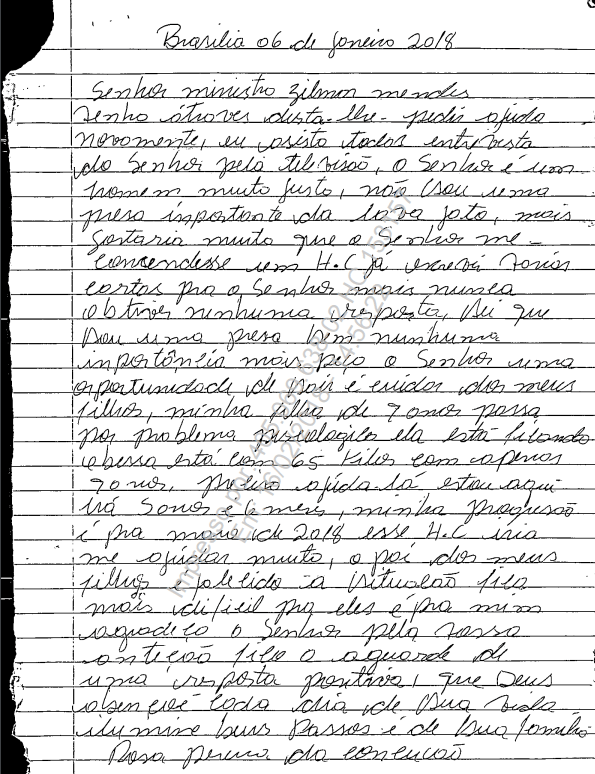 Brasilia 06 de Janeiro 2018
Senhor ministro Zilmar mendes
Venho átraves desta-lhe-pedir ajuda
novamente, eu asisto todas entrevista
do Senhor pela televisão, o Senhor é um
homem muito justo, não sou uma
presa importante da lava jato, mais
Gostaria muito que o Senhor me-
concendesse um H.C já escrevi varias
cartas pra o Senhor mais nunca
obtive nenhuma resposta, Sei que
sou uma presa sem nenhuma
importância mais peço o Senhor uma
oportunidade de sair é cuidar dos meus
filhos, minha filha de 9 anos passa
por problema pisicologicos ela está ficando
obessa está com 65 Kilos com apenas
9 anos, preciso ajuda-lá estou aqui
há 5 anos é 6 meses, minha progresão
é pra maio de 2018 esse H.C iria
me ajudar muito, o pai dos meus
filhos falelido a situacão fica
mais dificil pra eles é pra mim
agradeço o Senhor pela vossa
antecão fico o aguarde de
uma resposta positiva, que Deus
abençoê cada dia de sua vida
ilumine seus passos é de sua família
Rosa da conceicão
Impresso por:
Em: